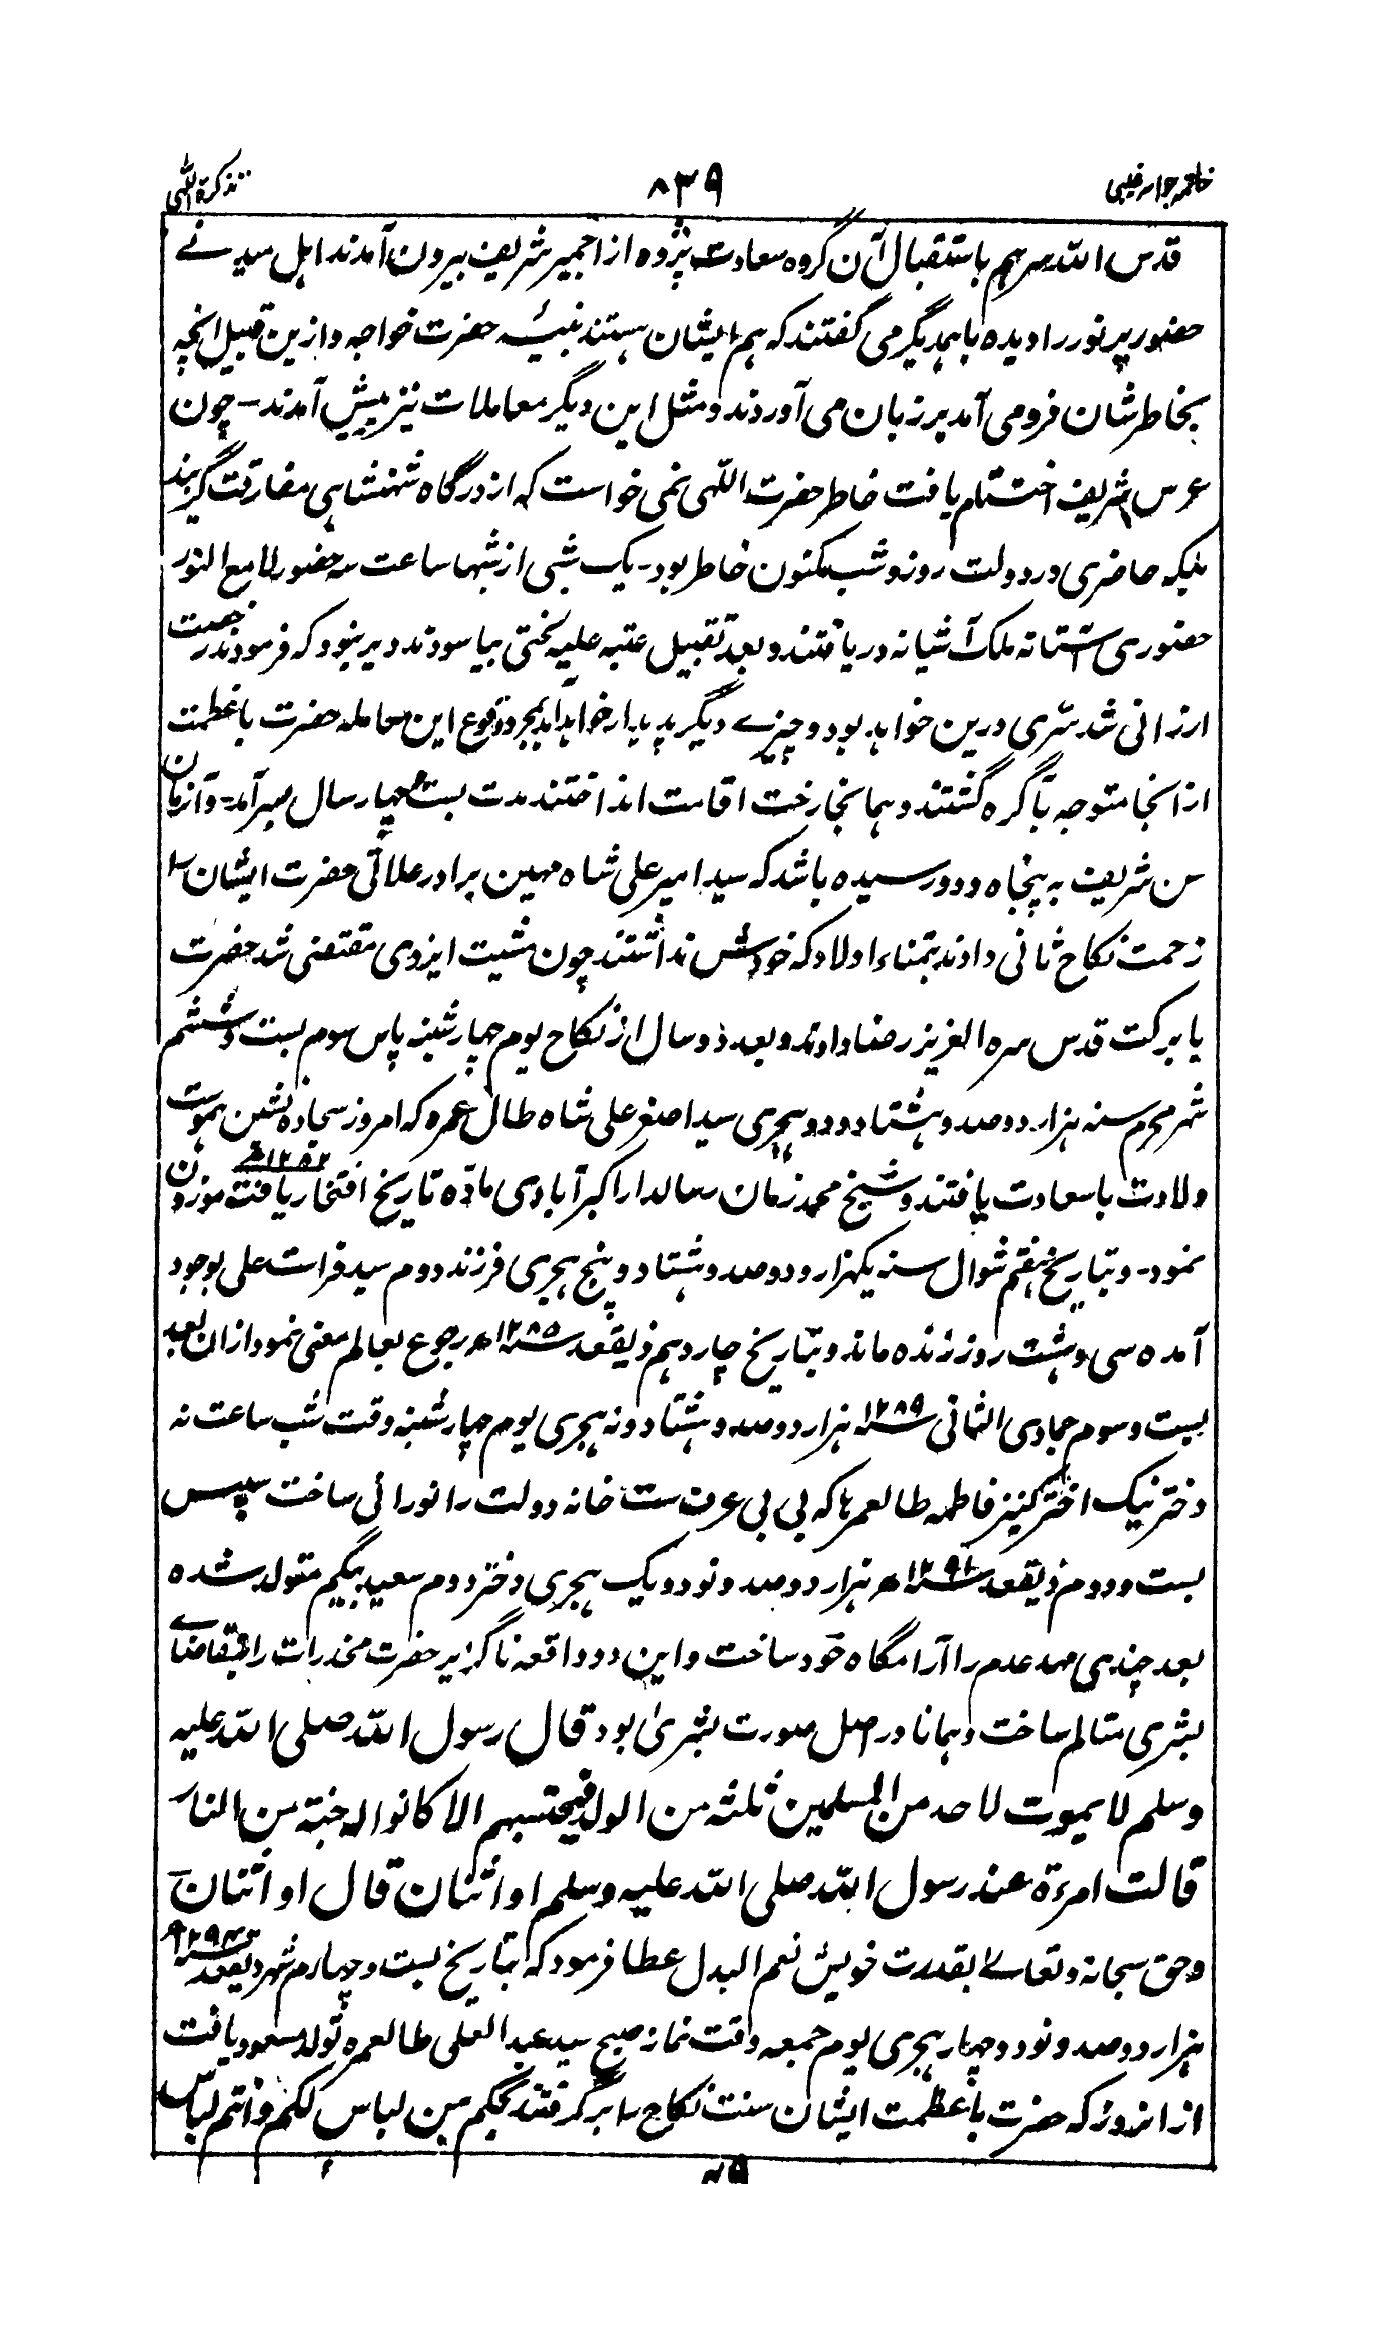 خاتمہ جواہر غیبی ۸۳۹ تذکرۃ اللہی
قدس اللہ سرہم باستقبال آن گروہ سعادت پژوہ از اجمیر شریف بیرون آمدند اہل سیر نے
حضور پر نور را دیدہ باہمدیگر می گفتند کہ ہم ایشان ہستند نبیئہ حضرت خواجہ و ازین قبیل انچہ
بخاطر شان فرو می آمد بر زبان می آوردند و مثل این دیگر معاملات نیز پیش آمدند - چون
عرس شریف اختتام یافت خاطر حضرت اللہی نمی خواست کہ از درگاہ شہنشاہی مفارقت گزیند
بلیکہ حاضری در دولت روز و شب مکنون خاطر بود - یک شبی از شبہا ساعت سہ حضور لامع النور
حضوری آستانہ ملک آشیانہ دریافتند و بعد تقبیل عتبہ علیہ لختی بیاسودند دیر نبود کہ فرمودند رخصت
ارزانی شد سری درین خواہد بود و چیزے دیگر پدیدار خواہد آمد بمجرد وقوع این معاملہ حضرت با عظمت
از انجا متوجہ بآگرہ گشتند و ہمانجا رخت اقامت انداختند مدت بست و چہار سال بسر آمد - و آن زمان
سن شریف بہ پنجاہ و دو رسیدہ باشد کہ سید امیر علی شاہ مہین برادر علاتی حضرت ایشان را
زحمت نکاح ثانی دادند بتمناء اولاد کہ خودش نداشتند چون مشیت ایزدی مقتضی شد حضرت
با برکت قدس سرہ العزیز رضا دادند و بعد دو سال از نکاح یوم چہار شنبہ پاس سوم بست و ششم
شہر محرم سنہ ہزار دو صد و ہشتاد و دو ہجری سید اصغر علی شاہ طال عمرہ کہ امروز سجادہ نشین ہموست
ولادت با سعادت یافتند و شیخ محمد زمان رسالدار اکبر آبادی مادّہ تاریخ افتخار یافت ۱۲۸۲ موزون
نمود - و بتاریخ ہفتم شوال سنہ یکہزار و دو صد و ہشتاد و پنج ہجری فرزند دوم سید فراست علی بوجود
آمدہ سی و ہشت روز زندہ ماند و بتاریخ چاردہم ذیقعد سنہ ۱۲۸۵ھ رجوع بعالم معنی نمود ازان بعد
بست و سوم جمادی الثانی سنہ ۱۲۸۹ ہزار دو صد و ہشتاد و نہ ہجری یوم چہار شنبہ وقت شب ساعت نہ
دختر نیک اختر کنیز فاطمہ طالعمرہا کہ بی بی عرف ست خانہ دولت را نورانی ساخت سپس
بست و دوم ذیقعد سنہ ۱۲۹۱ھ ہزار دو صد و نود و یک ہجری دختر دوم سعید بیگم متولد شدہ
بعد چندی مہد عدم را آرامگاہ خود ساخت و این دو واقعہ ناگزیر حضرت مخدرات را بتقاضاے
بشری متالم ساخت و ہمانا در اصل صورت بشریٰ بود قال رسول اللہ صلی اللہ علیہ
وسلم لا یموت لاحد من المسلمین ثلثہ من الولد فیحتسبہم الا کانوا لہ جنۃ من النار
قالت امرءۃ عند رسول اللہ صلی اللہ علیہ وسلم او اثنان قال او اثنان
و حق سبحانہ و تعالےٰ بقدرت خویش نعم البدل عطا فرمود کہ بتاریخ بست و چہارم شہر ذیقعد سنہ ۱۲۹۴
ہزار دو صد و نود و چہار ہجری یوم جمعہ وقت نماز صبح سید عبد العلی طالعمرہ تولد مسعود یافت
از انروز کہ حضرت با عظمت ایشان سنت نکاح را بر گرفتند بحکم ہن لباس لکم و انتم لباس